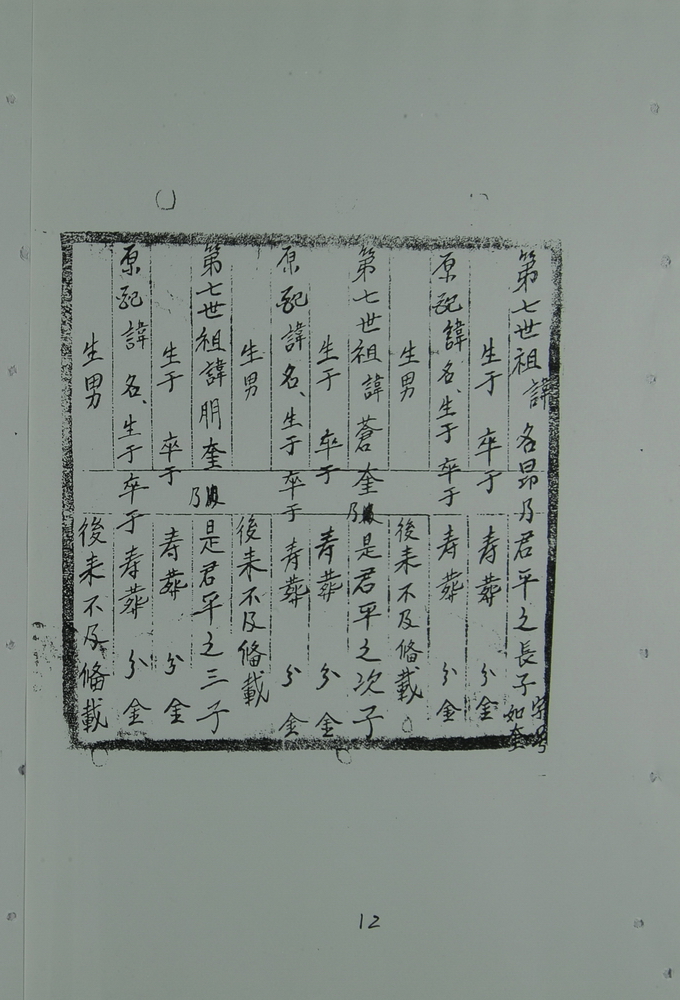 第七世祖諱名昂乃君平之長子字号如奎
生于 卒于 寿葬 分金
原配諱名生于卒于 寿葬 分金
生男 後来不及俻載
第七世祖諱蒼奎乃是君平之次子
生于 卒于 寿葬 分金
原配諱名、生于卒于 寿葬 分金
生男 後来不及俻載
第七世祖諱朋奎乃是君平之三子
生于 卒于 寿葬 分金
原配諱名、生于卒于寿葬 分金
生男 後来不及俻載
12